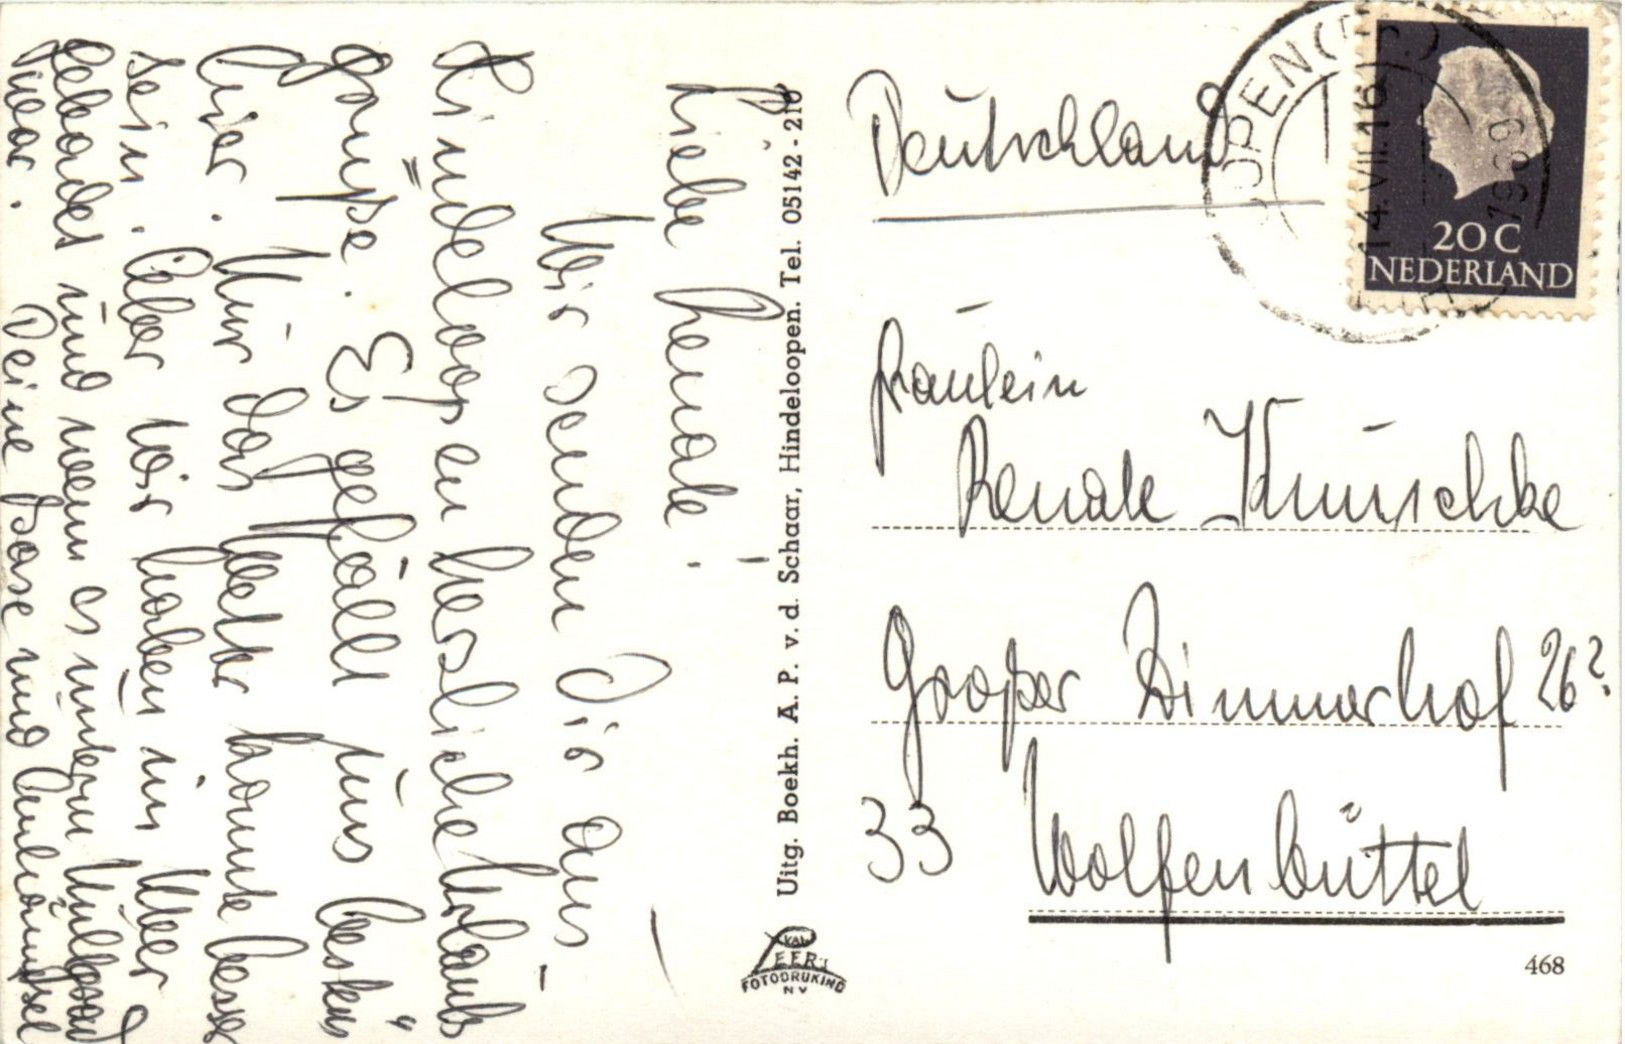 Liebe Renate!
Wir senden Dir aus
Hindeloopen herzliche Urlaubs-
grüße. Es gefällt uns bestens
hier. Nur das Wetter könnte besser
sein. Aber wir haben im Meer
gebadet und wenn es unterm
war. Deine Base und
Uitg. Boekh. A. P. v. d. Schaar, Hindeloopen. Tel. 05142 - 216
VAN
LEERS
FOTODRUKIND
N V
Deutschland
14.VII.16 1969
20 C
NEDERLAND
Fräulein
Renate Kunschke
Großer Zimmerhof 26?
33 Wolfenbüttel
468